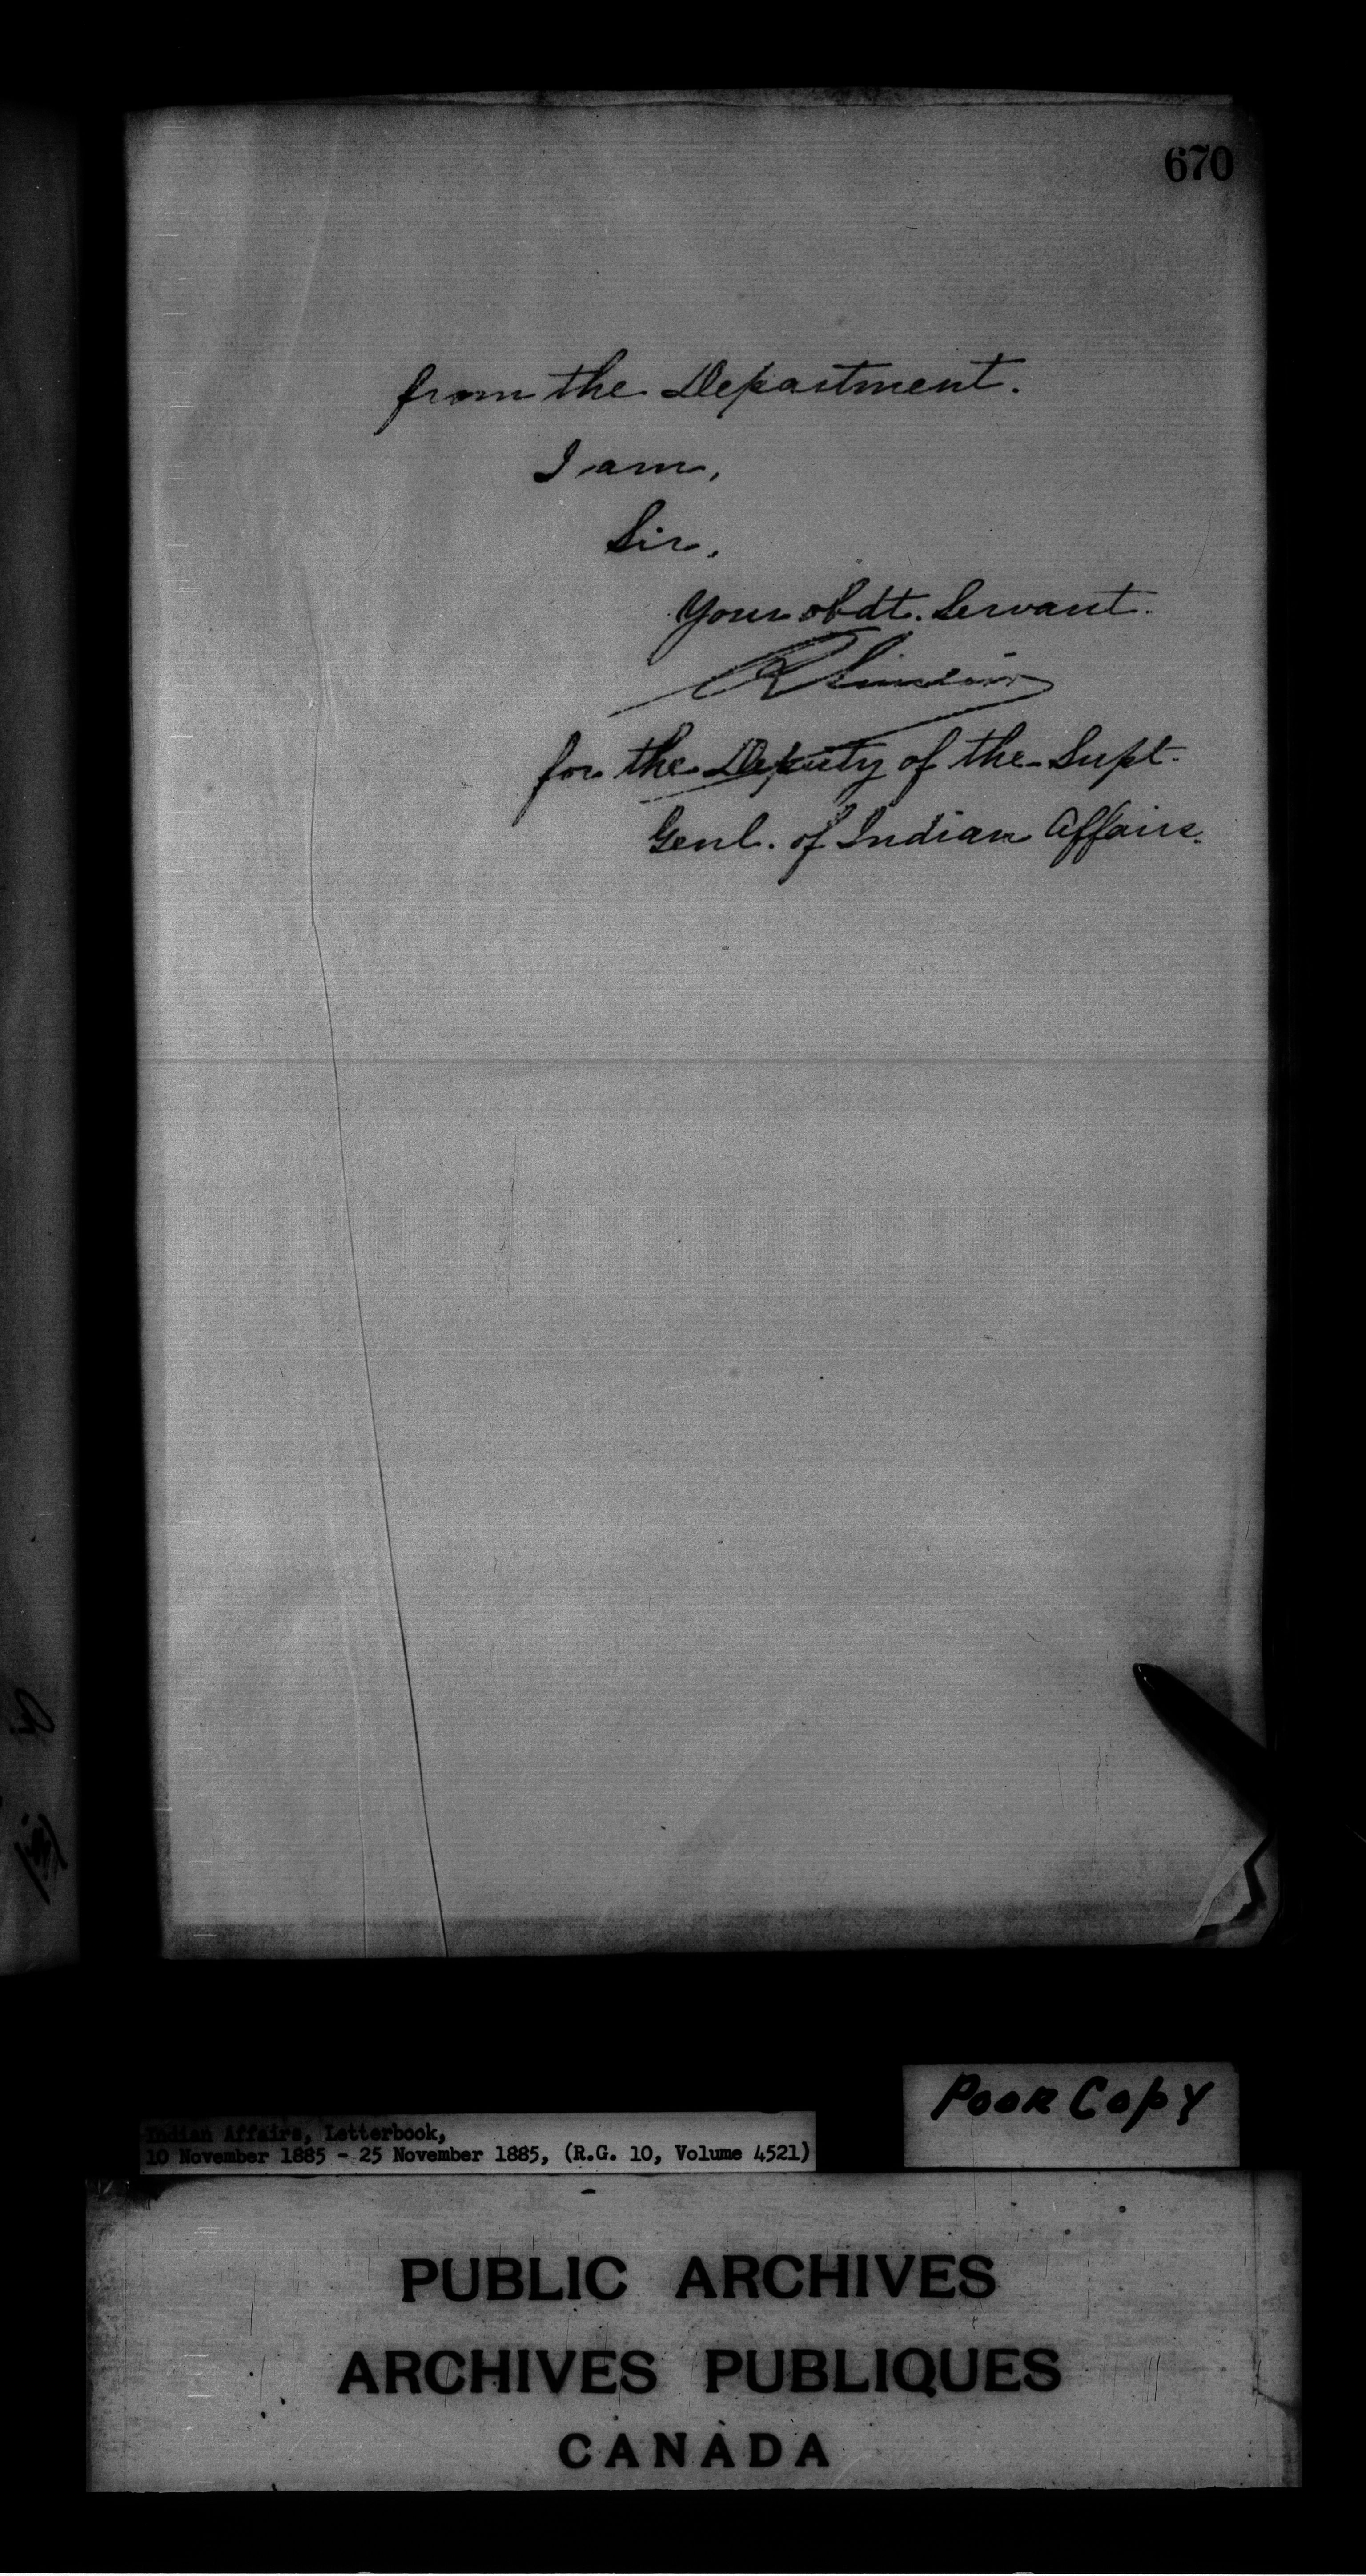 670
from the Department.
I am,
Sir,
Your obdt. Servant.
R Sinclair
for the Deputy of the Supt.
Genl. of Indian Affairs.
POOR COPY
Indian Affairs, Letterbook,
10 November 1885 - 25 November 1885, (R.G. 10, Volume 4521)
PUBLIC ARCHIVES
ARCHIVES PUBLIQUES
CANADA